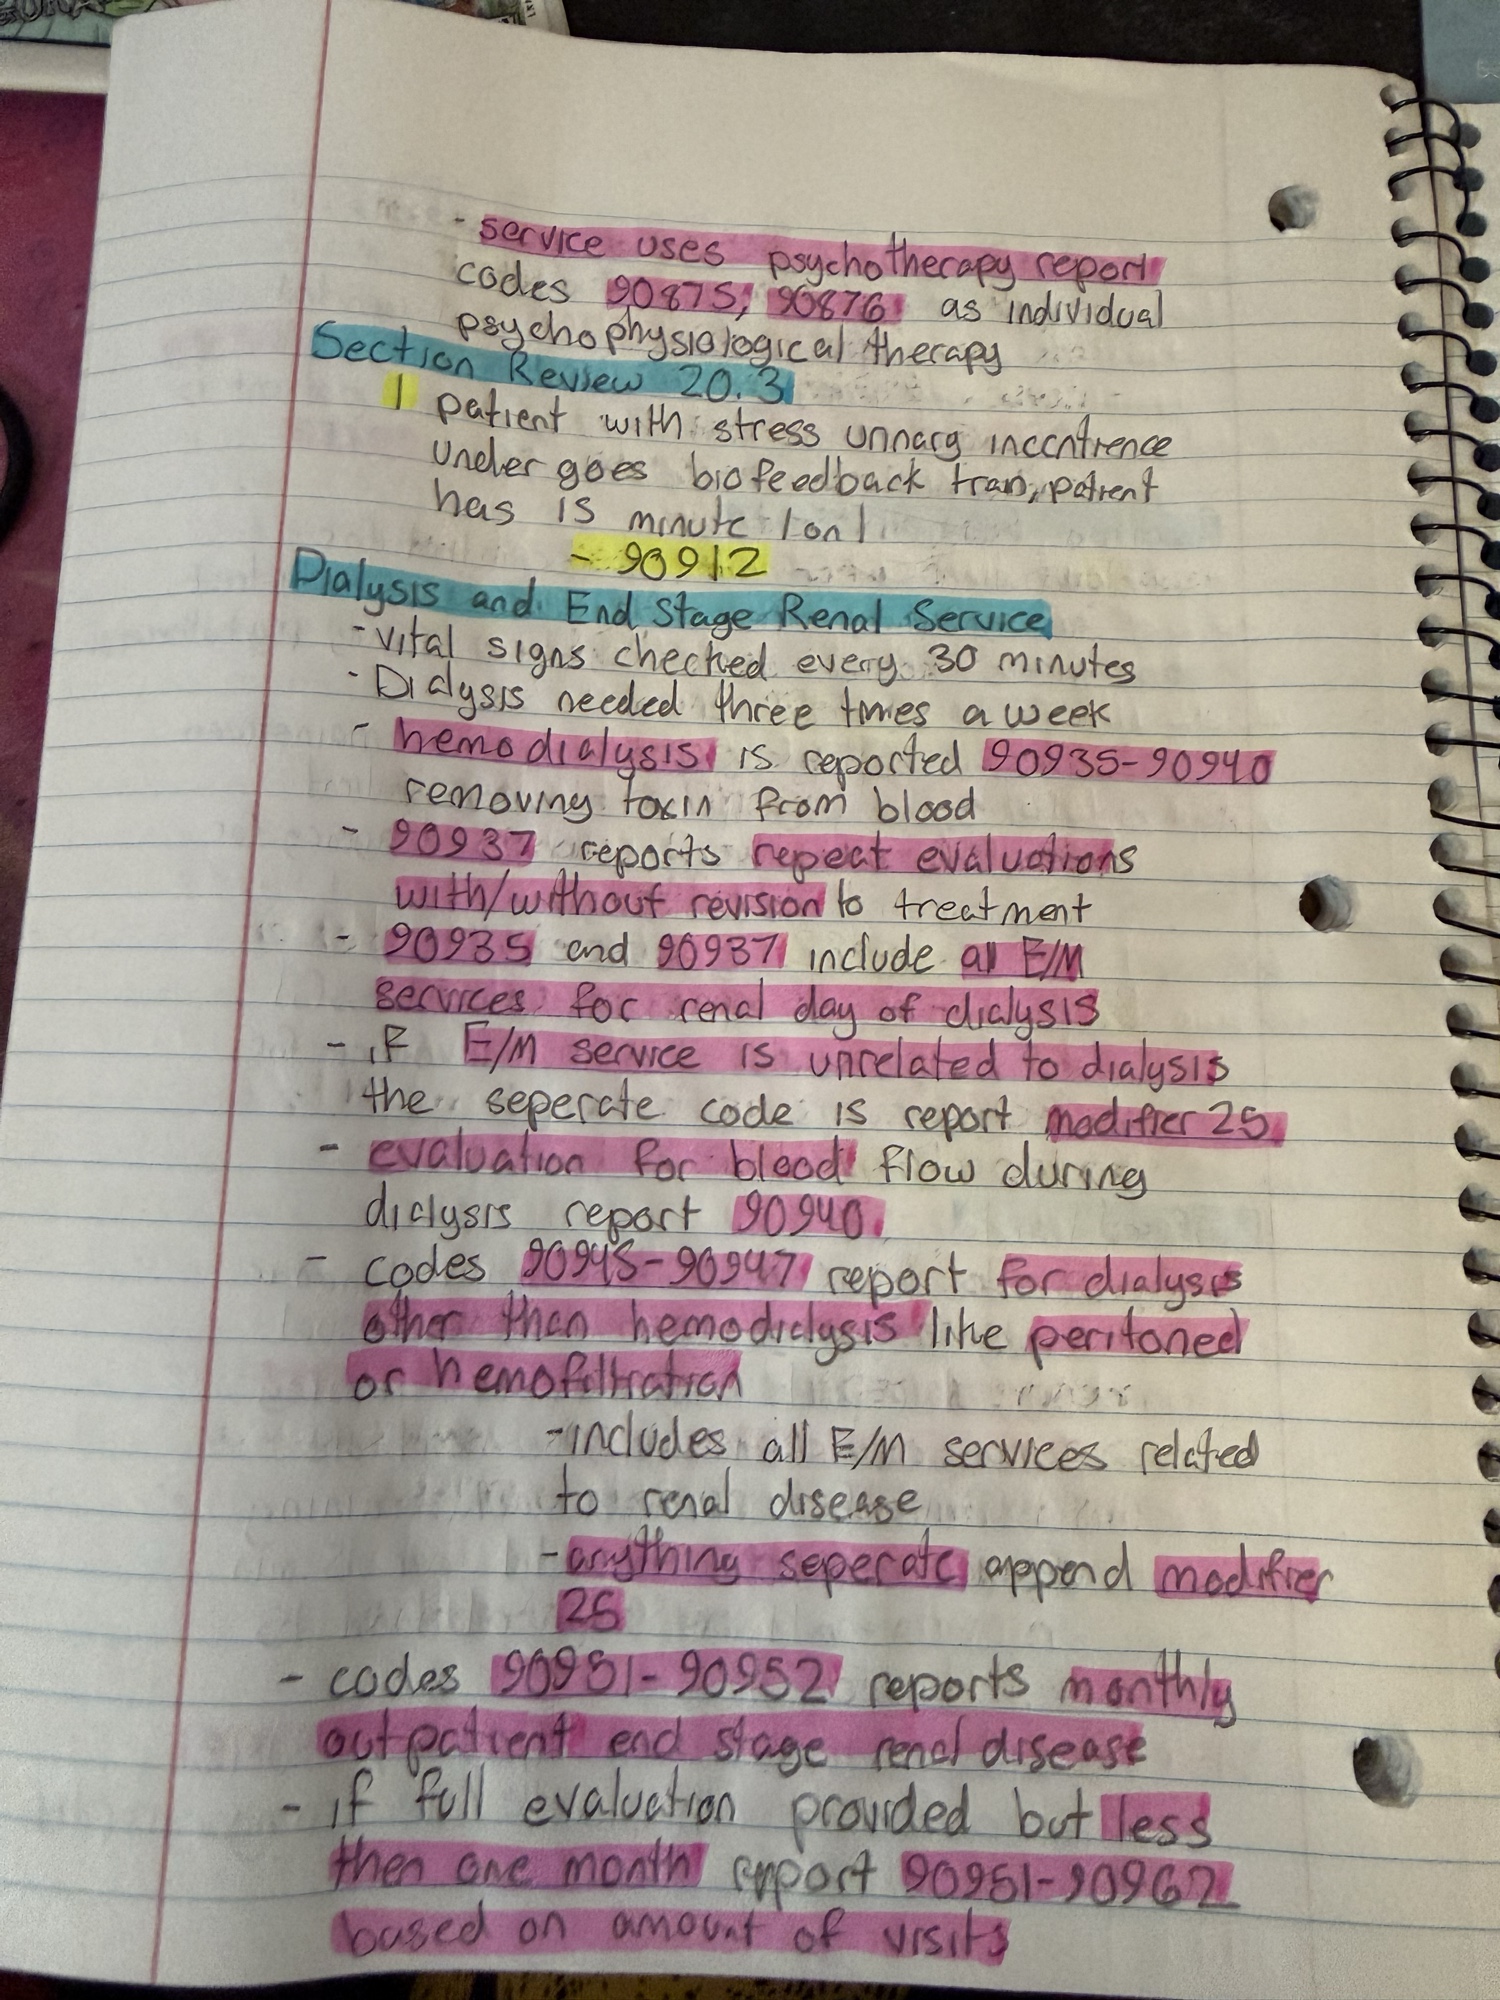 - service uses psychotherapy report
codes 90875, 90876 as individual
psychophysiological therapy
Section Review 20.3
1 patient with stress urinary
under goes biofeedback patient
has 15 minute 1 on 1
- 90912
Dialysis and End Stage Renal Service
- vital signs checked every 30 minutes
- Dialysis needed three times a week
- hemodialysis is reported 90935-90940
removing toxin from blood
- 90937 reports repeat evaluations
with/without revision to treatment
- 90935 and 90937 include all E/M
services for renal day of dialysis
- if E/M service is unrelated to dialysis
the seperate code is report modifier 25
- evaluation for blood flow during
dialysis report 90940
- codes 90945-90947 report for dialysis
other than hemodialysis like peritoneal
or hemofiltration
- includes all E/M services related
to renal disease
- anything seperate append modifier
25
- codes 90951-90952 reports monthly
outpatient end stage renal disease
- if full evaluation provided but less
then one month report 90951-90962
based on amount of visits